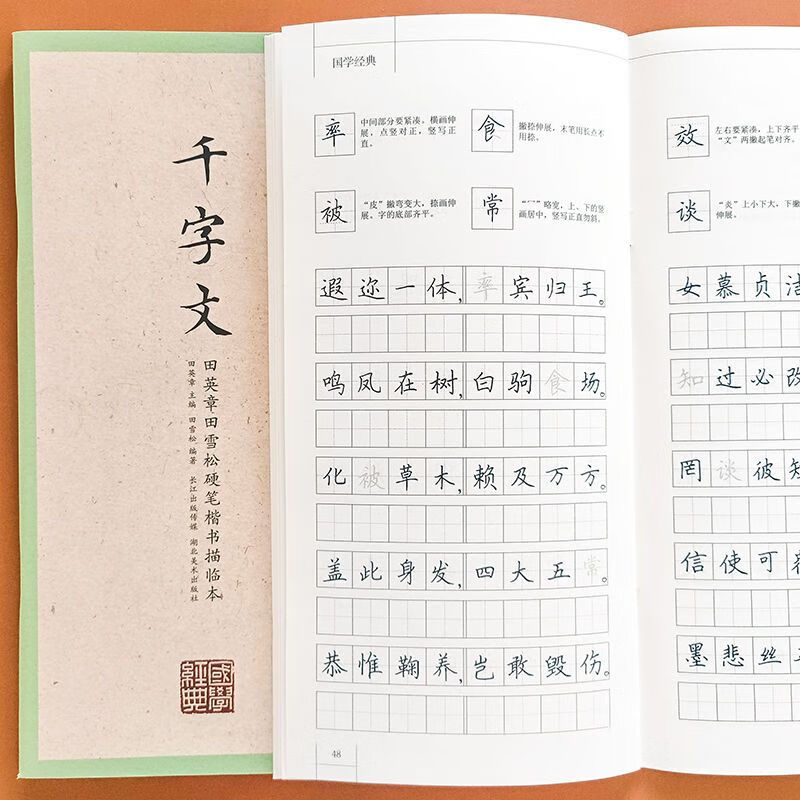 千字文
田英章田雪松硬笔楷书描临本
田英章 主编 田雪松 编著 长江出版传媒 湖北美术出版社
國學經典
国学经典
率 中间部分要紧凑。横画伸展,点竖对正,竖写正直。
食 撇捺伸展,末笔用长点不用捺。
被 “皮”撇弯变大,捺画伸展、字的底部齐平。
常 “冖”略宽,上、下的竖画居中,竖写正直勿斜。
遐迩一体,率宾归王。
鸣凤在树,白驹食场。
化被草木,赖及万方。
盖此身发,四大五常。
恭惟鞠养,岂敢毁伤。
48
效 左右要紧凑,上下齐平
“文”两撇起笔对齐。
谈 “炎”上小下大,下撇
伸展。
女慕贞洁
知过必改
罔谈彼短
信使可覆
墨悲丝